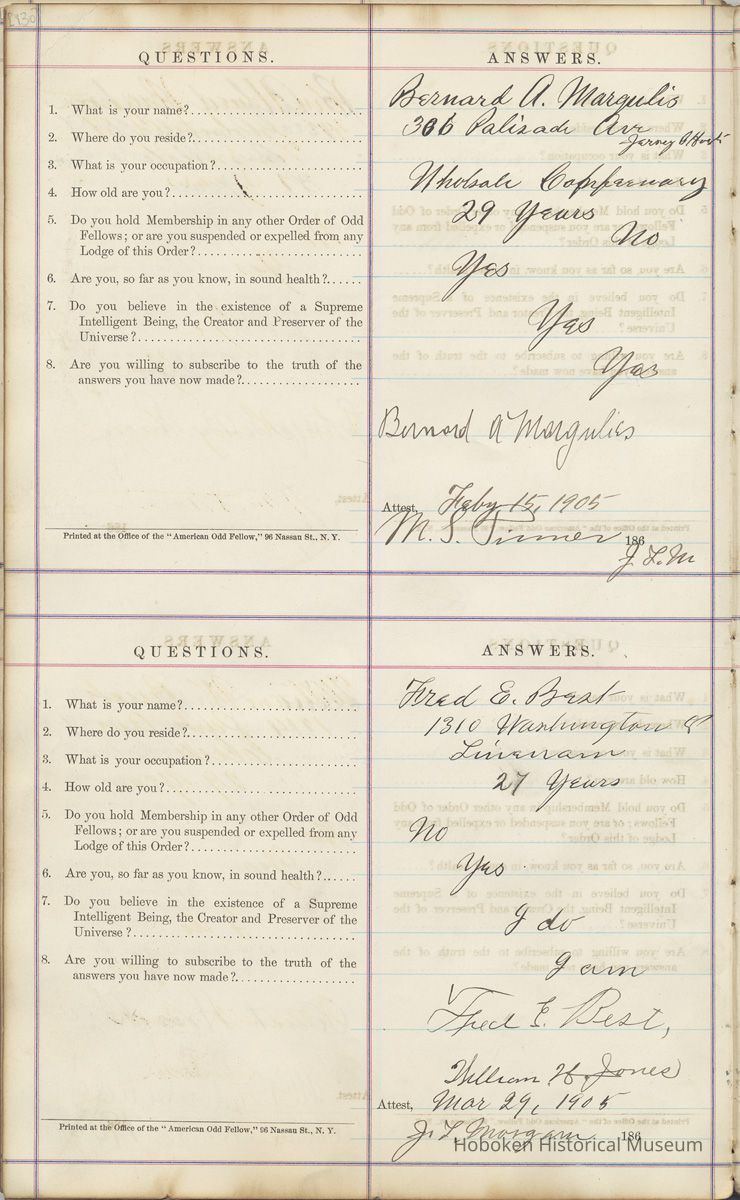 QUESTIONS.
ANSWERS.
1. What is your name?
Bernard A. Margulis
2. Where do you reside?
306 Palisade Ave
3. What is your occupation?
Wholsale
4. How old are you?
29 Years
5. Do you hold Membership in any other Order of Odd
Fellows; or are you suspended or expelled from any
Lodge of this Order?
No
6. Are you, so far as you know, in sound health?
Yes
7. Do you believe in the existence of a Supreme
Intelligent Being, the Creator and Preserver of the
Universe?
Yes
8. Are you willing to subscribe to the truth of the
answers you have now made?
Yes
Bernard A Margulies
Attest, Feby 15, 1905
M. S. 186
J. L. M
Printed at the Office of the "American Odd Fellow," 96 Nassau St., N. Y.
QUESTIONS.
ANSWERS.
1. What is your name?
Fred E. Best
2. Where do you reside?
1310 Washington
3. What is your occupation?
Lineman
4. How old are you?
27 Years
5. Do you hold Membership in any other Order of Odd
Fellows; or are you suspended or expelled from any
Lodge of this Order?
No
6. Are you, so far as you know, in sound health?
Yes
7. Do you believe in the existence of a Supreme
Intelligent Being, the Creator and Preserver of the
Universe?
I do
8. Are you willing to subscribe to the truth of the
answers you have now made?
I am
Fred E. Best,
William H. Jones
Attest, Mar 29, 1905
J. L. Morgan 186
Printed at the Office of the "American Odd Fellow," 96 Nassau St., N. Y.
Hoboken Historical Museum